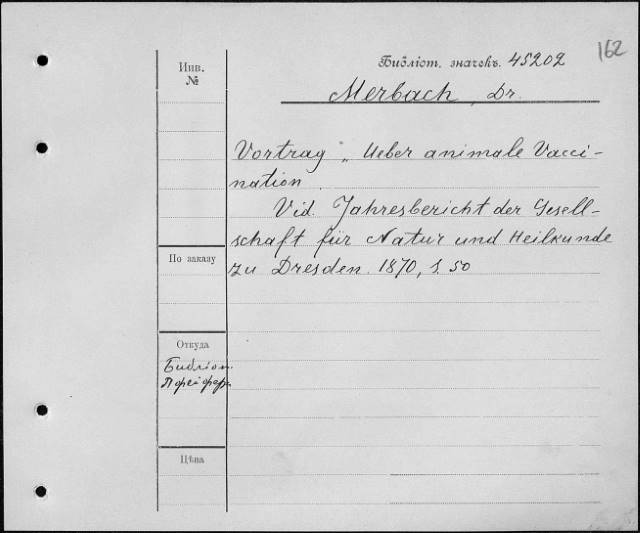 162
Инв.
№
Библіот. значекъ. 45202
Merbach, Dr.
Vortrag „Ueber animale Vacci-
nation.
Vid. Jahresbericht der Gesell-
schaft für Natur und Heilkunde
zu Dresden. 1870, S. 50
По заказу
Откуда
Библіот.
Пфейфер
Цѣна